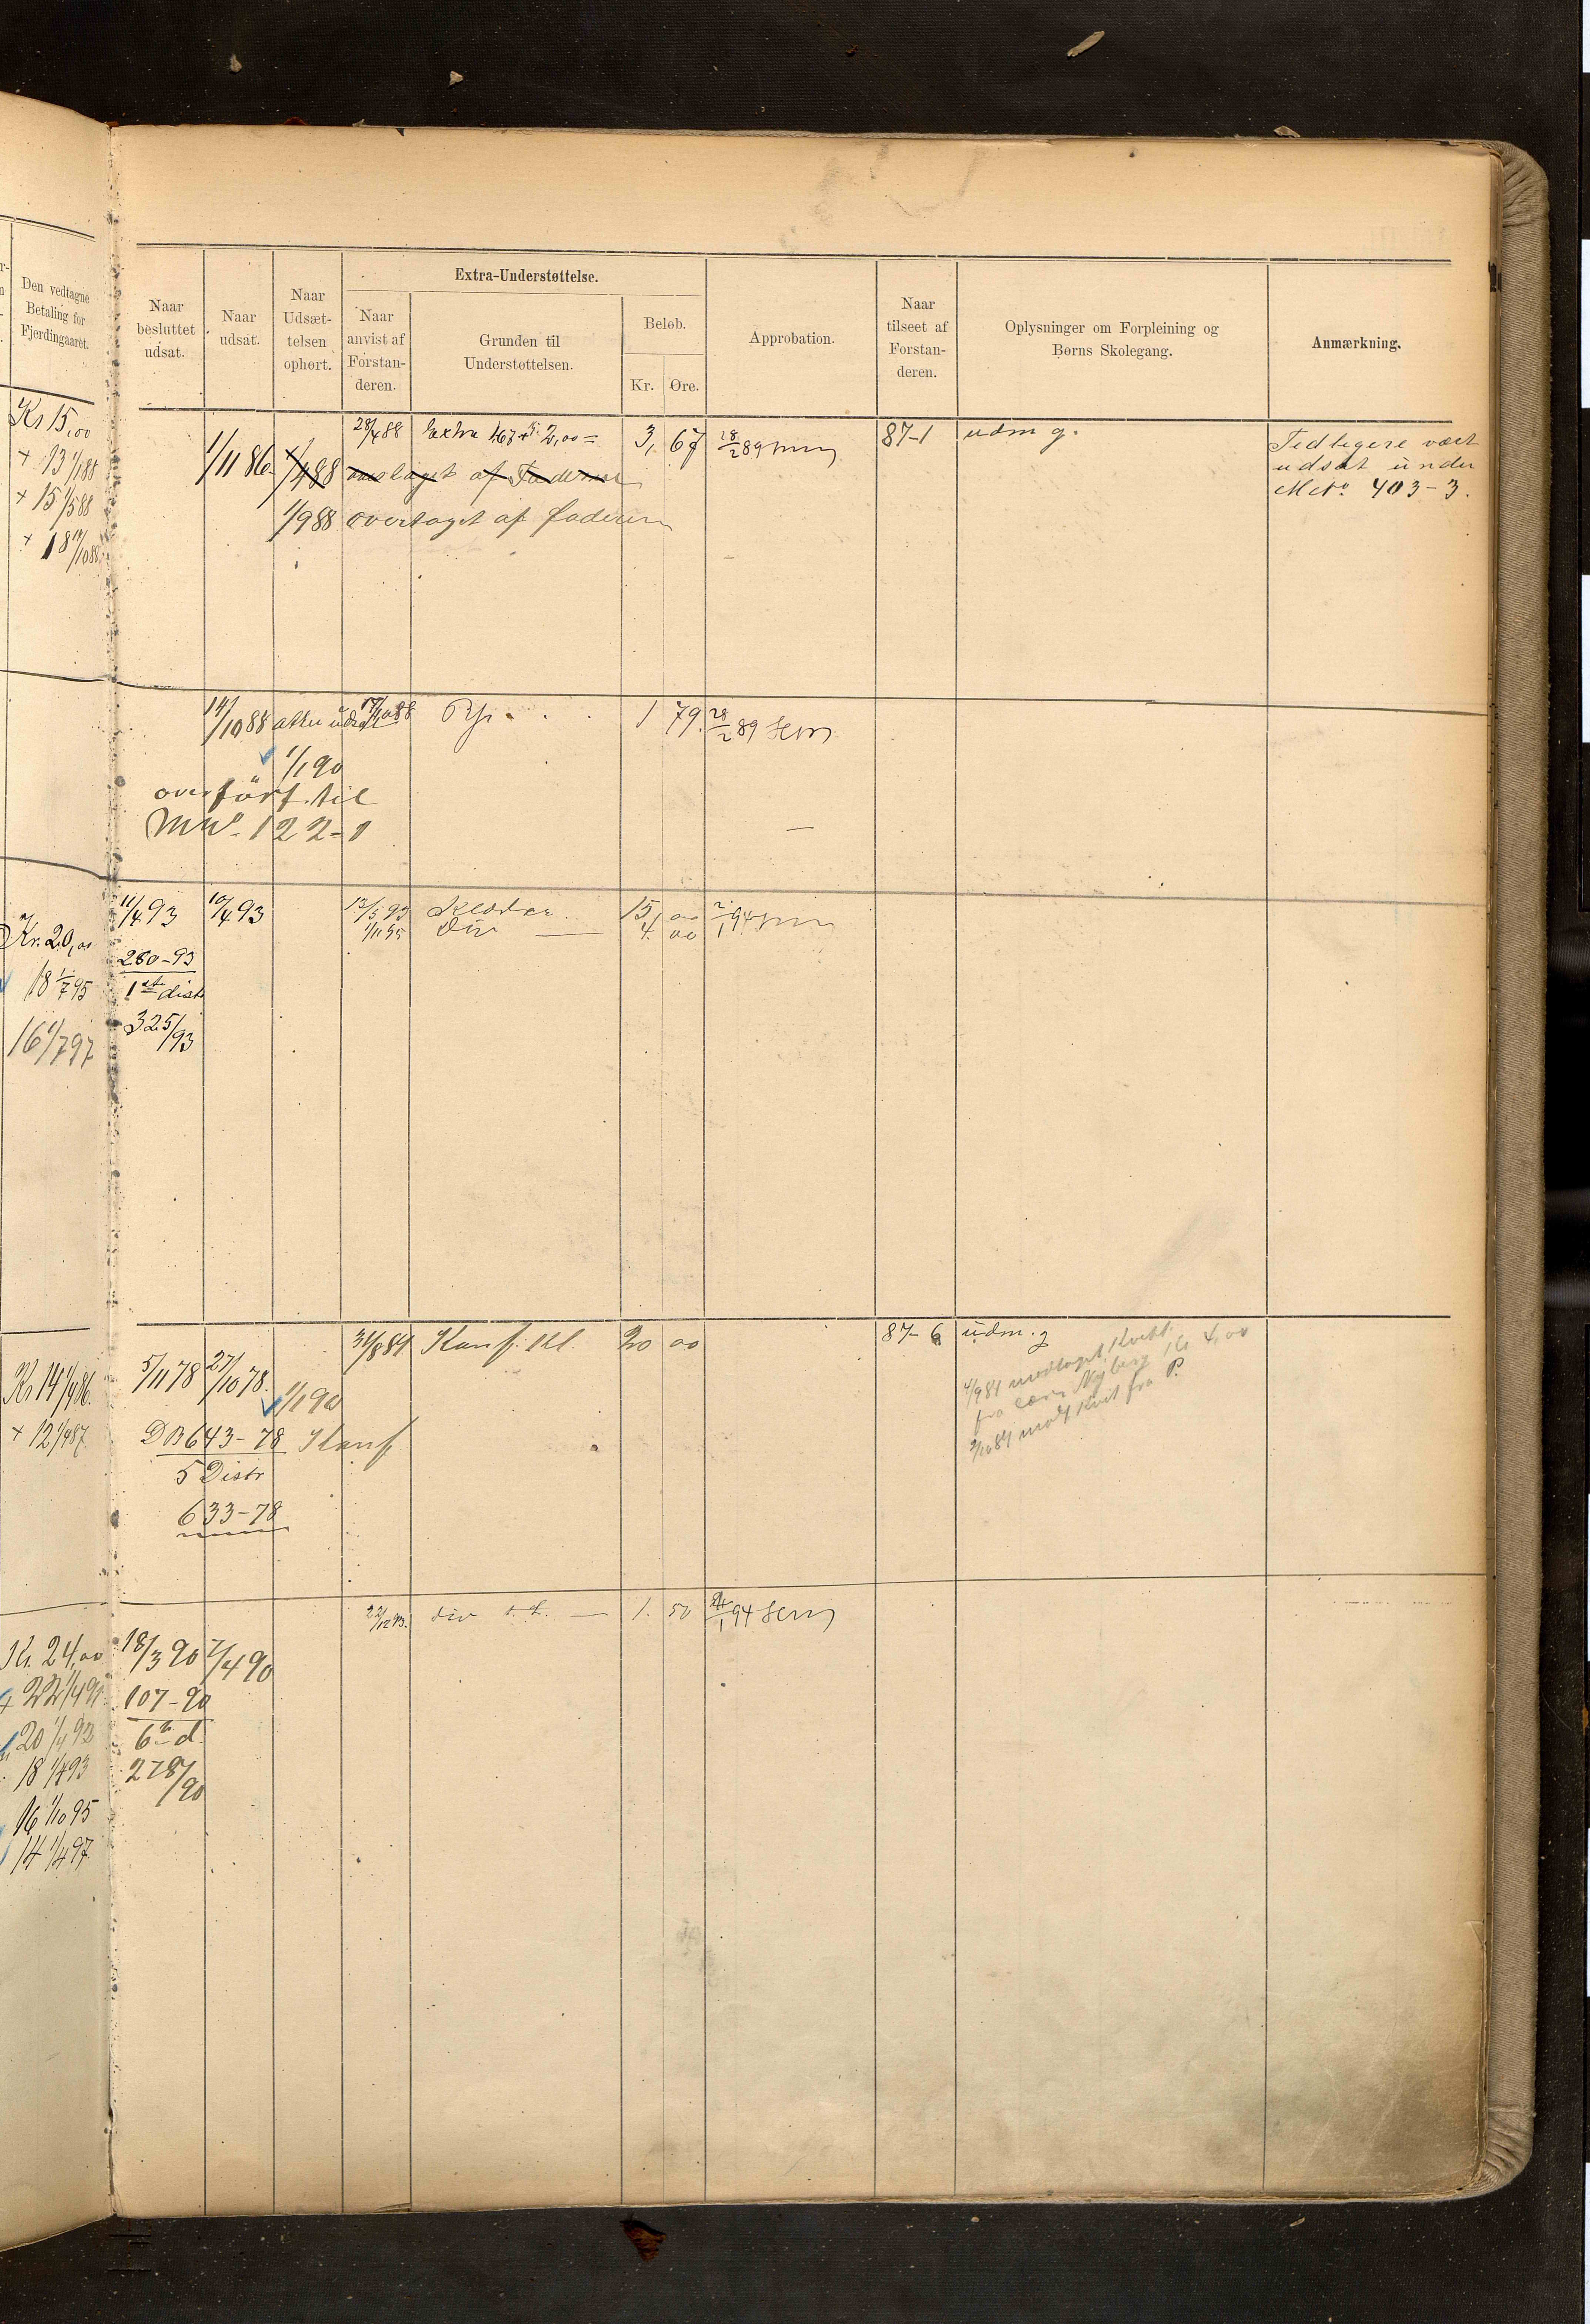 Den vedtagne
Betaling for
Fjerdingaaret.
Naar
besluttet
udsat.
Naar
udsat.
Naar
Udsæt-
telsen
ophørt.
Extra-Understøttelse.
Naar
anvist af
Forstan-
deren.
Grunden til
Understøttelsen.
Beløb.
Kr.
Øre.
Approbation.
Naar
tilseet af
Forstan-
deren.
Oplysninger om Forpleining og
Børns Skolegang.
Anmærkning.
Kr 15,00
+ 13 1/1 88
+ 15 1/5 88
+ 18 14/10 88
1/11 86
28/4 88 Extra 1.67 + 2,00 = 3, 67 28/2 89
1/4 88 af Faderen
1/9 88 overtaget af faderen
87-1 udm g.
Tidligere vært
udsat under
403-3.
14/10 88 atter udsat 17/10 88 1 79. 28/2 89
1/1 90
overført til
122-1
Kr. 20,00
18 1/7 95
16 1/7 97
11/4 93 10/4 93
280-93
1st distr
325/93
13/5 93 Klæder 15, 00
1/11 95 Div 4. 00
2/1 94
Kr 14 1/4 86.
+ 12 1/4 87.
5/11 78 27/10 78.
1/1 90
DB 643-78 Konf
5 Distr
633-78
31/8 84 Konf. Kl. 20 00
87-6 udm. g
4/9 84 modtaget Kvitt.
fra Nyberg Kr 4,00
Kvit fra P.
Kr. 24,00
+ 22 1/4 91
20 1/4 92
18 1/4 93
16 1/10 95
14 1/4 97
18/3 90 7/4 90
107-90
6 d.
278/90
22/12 93. div 1. 50